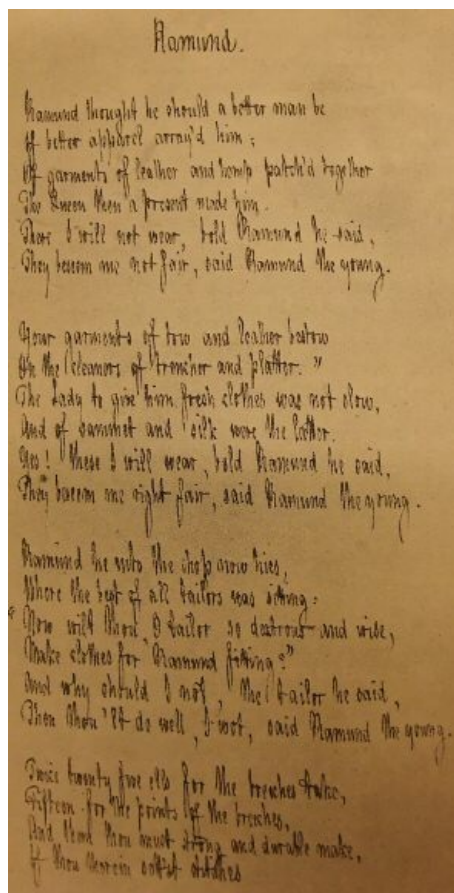 Ramund.
Ramund thought he should a better man be
If better apparel array'd him;
Of garments of leather and hemp patch'd together
The Queen then a present made him.
These I will not wear, bold Ramund he said,
They beseem me not fair, said Ramund the young.
Your garments of tow and leather bestow
On the cleaners of trencher and platter."
The Lady to give him fresh clothes was not slow,
And of sammet and silk were the latter.
Yes! these I will wear, bold Ramund he said,
They beseem me right fair, said Ramund the young.
Ramund he into the shop now hies,
Where the best of all tailors was sitting:
Now wilt thou, O tailor so dextrous and wise,
Make clothes for Ramund fitting?"
And why should I not, the tailor he said,
Then thou'lt do well, I wot, said Ramund the young.
Twice twenty five ells for the breeches take,
Fifteen for the points of the breeches,
And them thou must strong and durable make,
If thou therein settst stitches